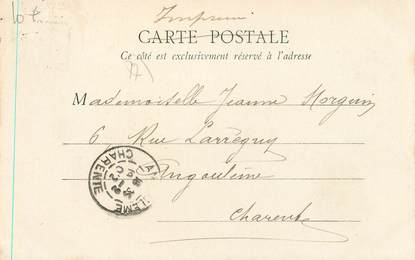 Imprimé
CARTE POSTALE
Ce côté est exclusivement réservé à l'adresse
Mademoiselle Jeanne Morguin
6 Rue Larréguy
Angoulême
Charente
CHARENTE